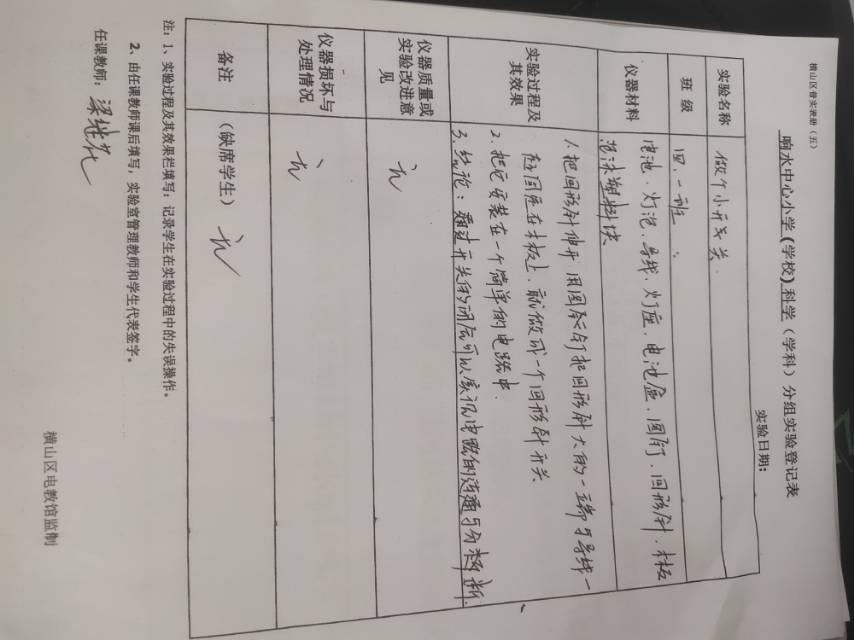 横山区普实表册（五）
响水中心小学（学校）科学（学科）分组实验登记表
实验日期：
实验名称 做个小开关
班级 四.一班
仪器材料 电池.灯泡.导线.灯座.电池盒.图钉.回形针.木板
泡沫塑料块
实验过程及其效果
1.把回形针伸开用图钉把回形针大的一端与导线一
起固定在木板上,就做成一个回形针开关
2.把它安装在一个简单的电路中.
3.结论:通过开关的闭合可以实现电路的连通与断.
仪器质量或实验改进意见 无
仪器损坏与处理情况 无
备注 （缺席学生） 无
注：1、实验过程及其效果栏填写：记录学生在实验过程中的失误操作。
2、由任课教师课后填写，实验室管理教师和学生代表签字。
任课教师：梁艳花
横山区电教馆监制